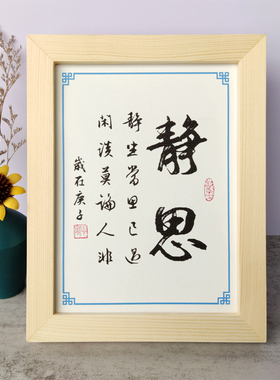 静思
静坐常思己过
闲谈莫論人非
歲在庚子